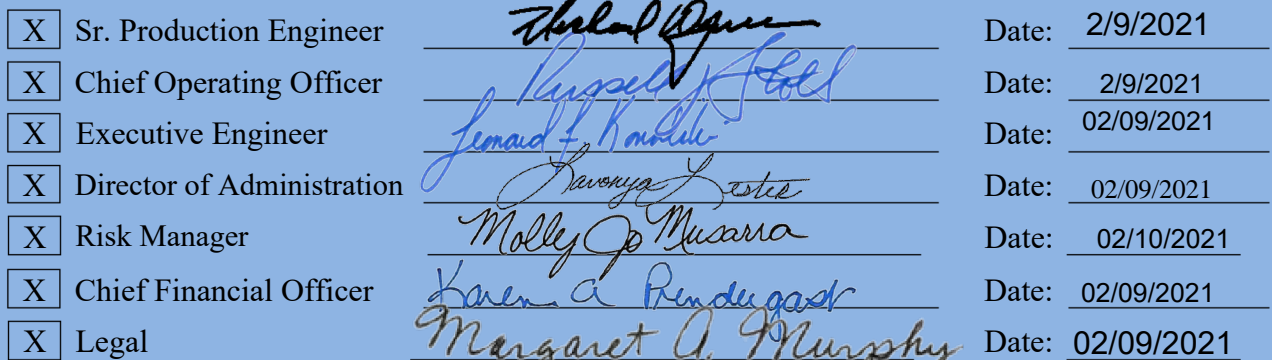 X Sr. Production Engineer Date: 2/9/2021
X Chief Operating Officer Russell J Stoll Date: 2/9/2021
X Executive Engineer Leonard F. Date: 02/09/2021
X Director of Administration Lavonya Lester Date: 02/09/2021
X Risk Manager Molly Jo Musarra Date: 02/10/2021
X Chief Financial Officer Karen A Prendergast Date: 02/09/2021
X Legal Margaret A. Murphy Date: 02/09/2021